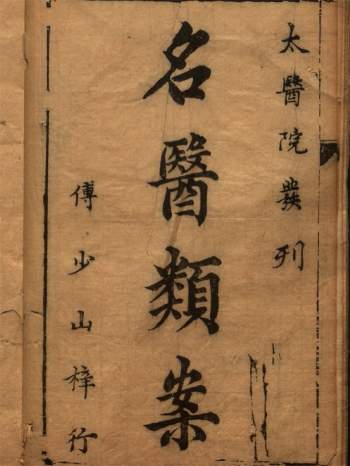 太醫院發刋
名醫類案
傅少山梓行